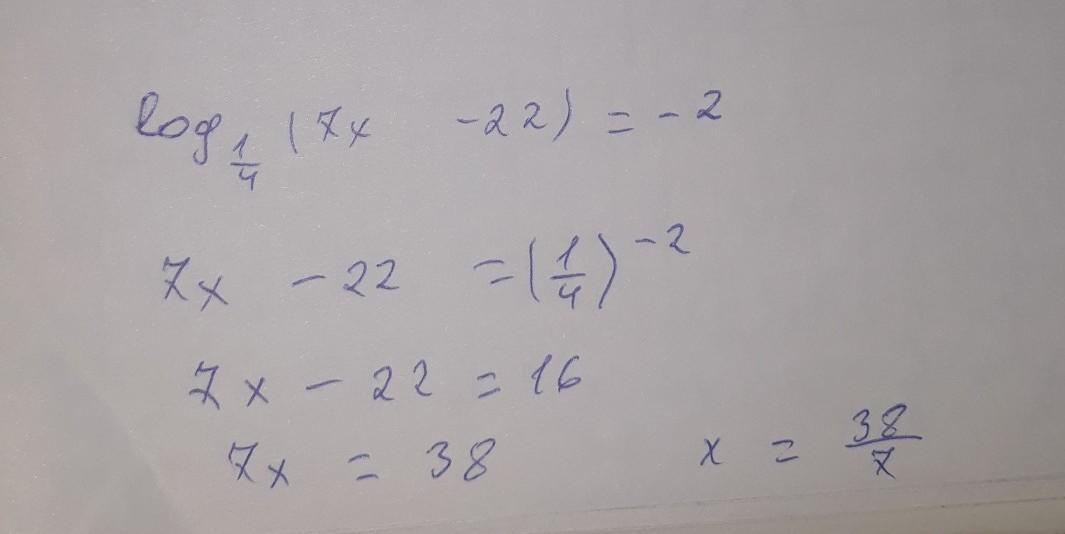 log_{1/4} (7x -22) = -2
7x - 22 = (1/4)^{-2}
7x - 22 = 16
7x = 38 x = 38/7